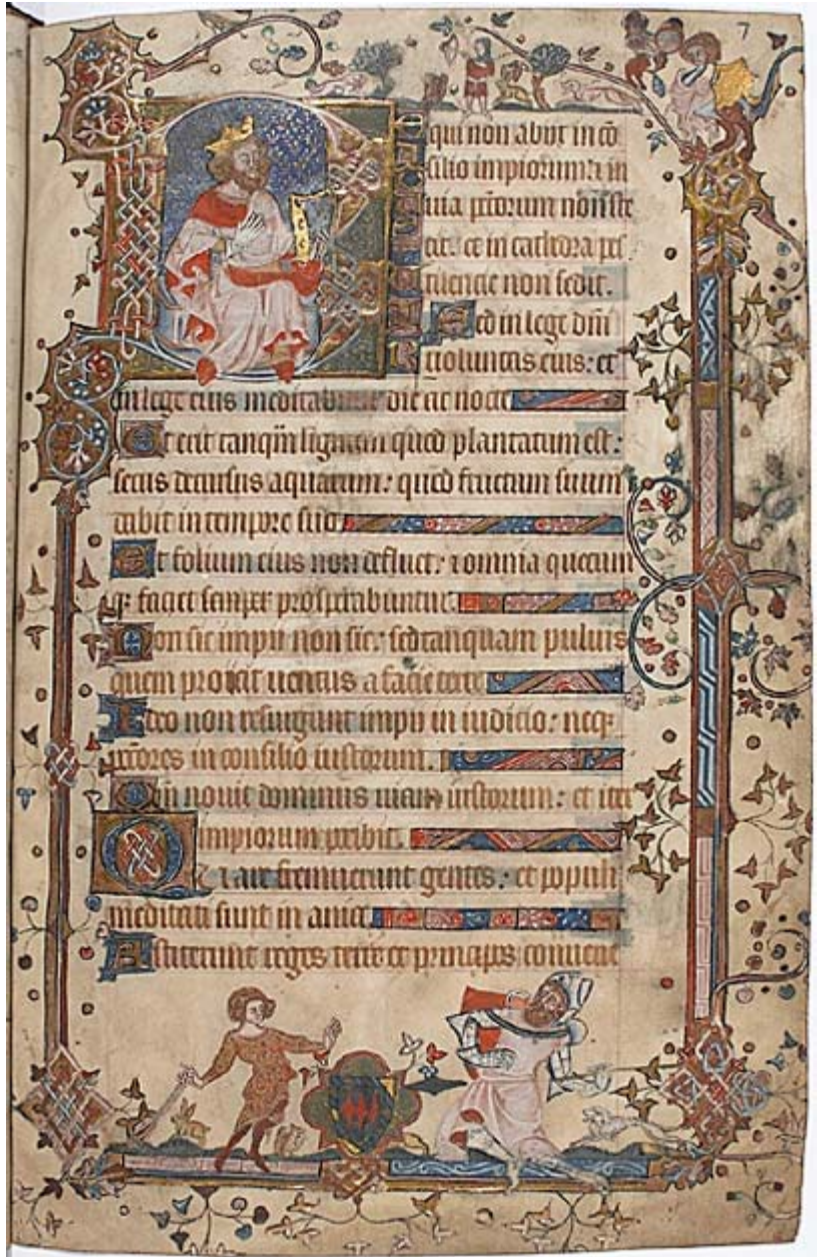 7
B E
qui non abiit in cō
silio impiorum ⁊ in
uia pctorum non ste
tit: et in cathedra pes
tilencie non sedit.
Sed in lege dn̄i
uoluntas eius: et
in lege eius meditabitur die ac nocte
Et erit tanqm̄ lignum quod plantatum est:
secus decursus aquarum: quod fructum suum
dabit in tempore suo
Et folium eius non defluet: ⁊ omnia quecum
qꝫ faciet semper prosperabuntur.
Non sic impii non sic: sed tanquam puluis
quem proicit uentus a facie terre
Ideo non resurgunt impii in iudicio: neqꝫ
pctōres in consilio iustorum.
Qm̄ nouit dominus uiam iustorum: et iter
impiorum peribit.
Quare fremuerunt gentes: et populi
meditati sunt in ania
Astiterunt reges terre et principes conuene